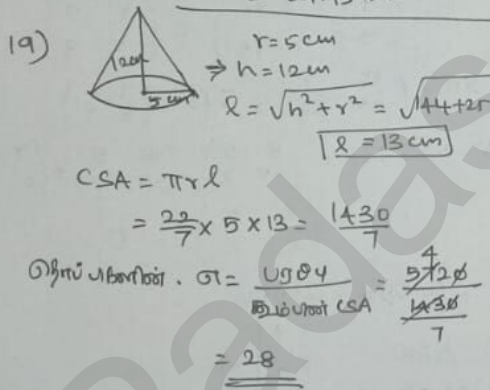 19)
12cm
5 cm
r = 5 cm
⇒ h = 12cm
l = √h² + r² = √144+25
l = 13 cm
CSA = πrl
= 22/7 × 5 × 13 = 1430/7
தொப்பிகளின் . எ = பரப்பு / கூம்பின் CSA = 5720 / (1430/7)
4
= 28